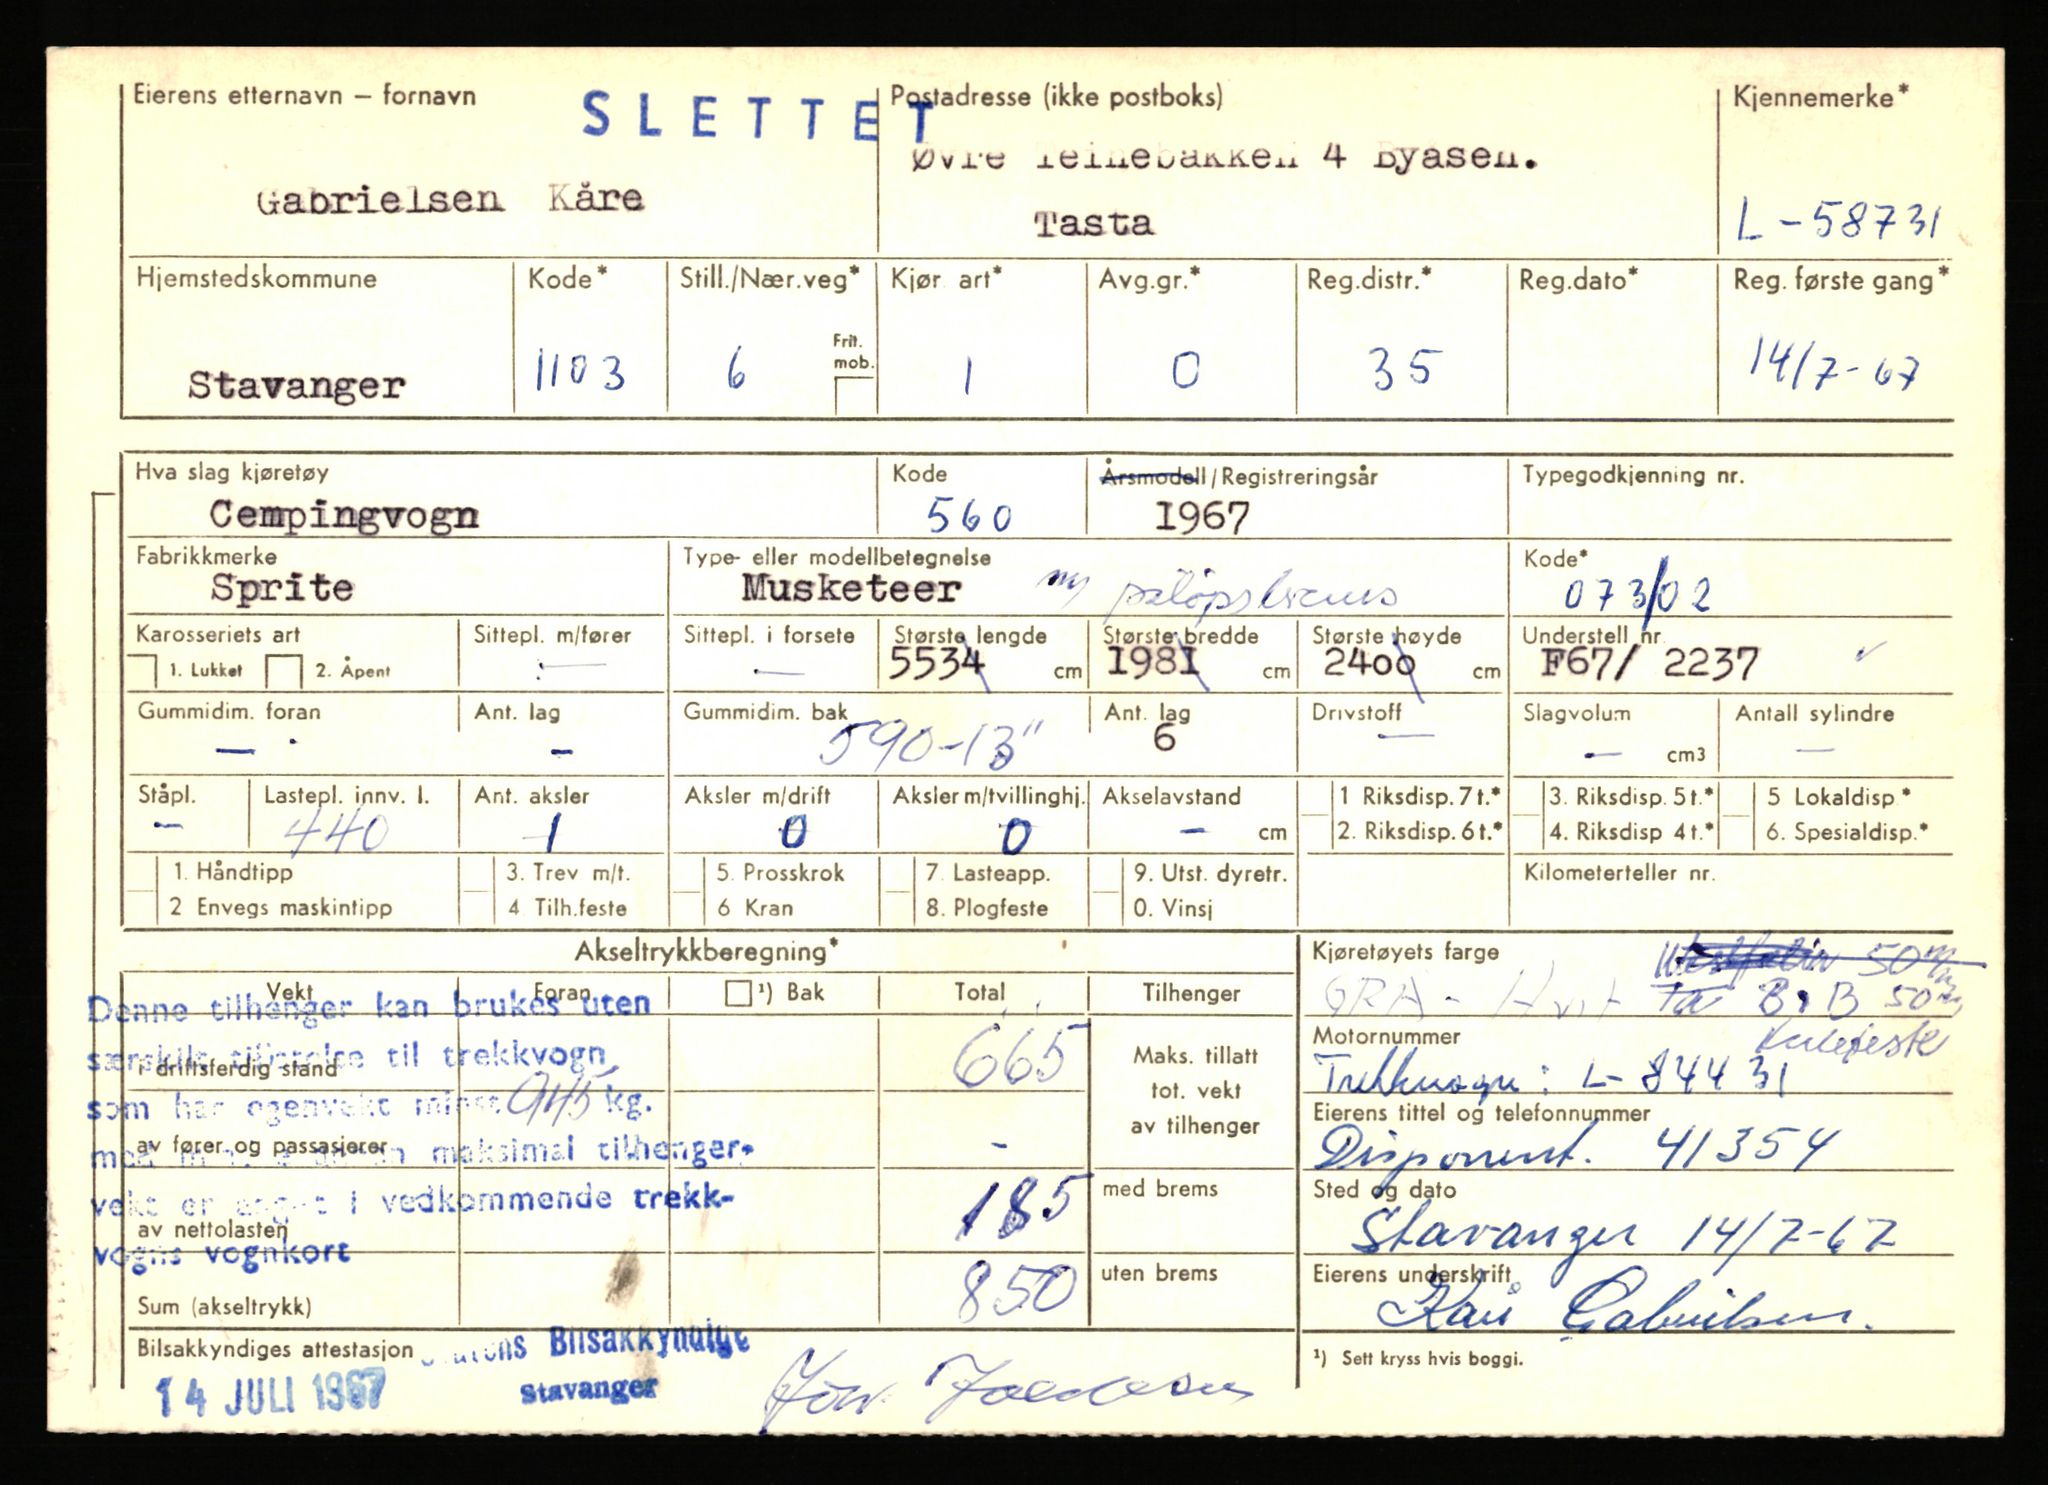 Eierens etternavn – fornavn
SLETTET
Postadresse (ikke postboks)
Kjennemerke*
Øvre Teinebakken 4 Byåsen.
Gabrielsen Kåre
Tasta
L-58731
Hjemstedskommune
Kode*
Still./Nær.veg*
Kjør art*
Avg.gr.*
Reg.distr.*
Reg.dato*
Reg. første gang*
Frit. mob.
Stavanger
1103
6
1
0
35
14/7-67
Hva slag kjøretøy
Kode
Årsmodell/Registreringsår
Typegodkjenning nr.
Cempingvogn
560
I967
Fabrikkmerke
Type- eller modellbetegnelse
Kode*
Sprite
Musketeer m/ påløpsbrems
073/02
Karosseriets art
Sittepl. m/fører
Sittepl. i forsete
Største lengde
Største bredde
Største høyde
Understell nr.
1. Lukket
2. Åpent
—
—
5534 cm
I98I cm
24oo cm
F67/ 2237
Gummidim. foran
Ant. lag
Gummidim. bak
Ant. lag
Drivstoff
Slagvolum
Antall sylindre
—
-
590-13"
6
—
— cm3
—
Ståpl.
Lastepl. innv. l.
Ant. aksler
Aksler m/drift
Aksler m/tvillinghj.
Akselavstand
1 Riksdisp. 7 t.*
3. Riksdisp. 5 t.*
5 Lokaldisp.*
-
440
1
0
0
- cm
2. Riksdisp. 6 t.*
4. Riksdisp 4 t.*
6. Spesialdisp.*
1. Håndtipp
3. Trev m/t.
5. Prosskrok
7. Lasteapp.
9. Utst. dyretr.
Kilometerteller nr.
2 Envegs maskintipp
4 Tilh.feste
6 Kran
8. Plogfeste
0. Vinsj
Akseltrykkberegning*
Kjøretøyets farge
50 m/m
Vekt
Foran
¹) Bak
Total
Tilhenger
GRÅ - Hvit
B.B 50 m/m
Kulefeste
Denne tilhenger kan brukes uten
særskilt tillatelse til trekkvogn
som har egenvekt minst 945 kg.
maksimal tilhenger-
vekt er angitt i vedkommende trekk-
vogns vognkort
i driftsferdig stand
665
Maks. tillatt
tot. vekt
av tilhenger
Motornummer
Trekkvogn: L-84431
av fører og passasjerer
-
Eierens tittel og telefonnummer
Disponent. 41354
av nettolasten
185
med brems
Sted og dato
Stavanger 14/7-67
Sum (akseltrykk)
850
uten brems
Eierens underskrift
Kåre Gabrielsen.
Bilsakkyndiges attestasjon
Statens Bilsakkyndige
Stavanger
14 JULI 1967
¹) Sett kryss hvis boggi.